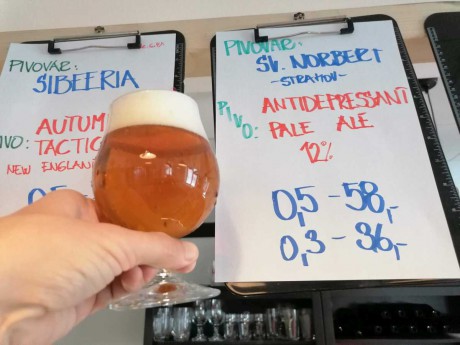 PIVOVAR:
SIBEERIA
AUTUM
TACTIC
NEW ENGLAND
PIVOVAR:
SV. NORBERT
-STRAHOV-
PIVO:
ANTIDEPRESSANT
PALE ALE
12%
0,5 - 58,-
0,3 - 36,-